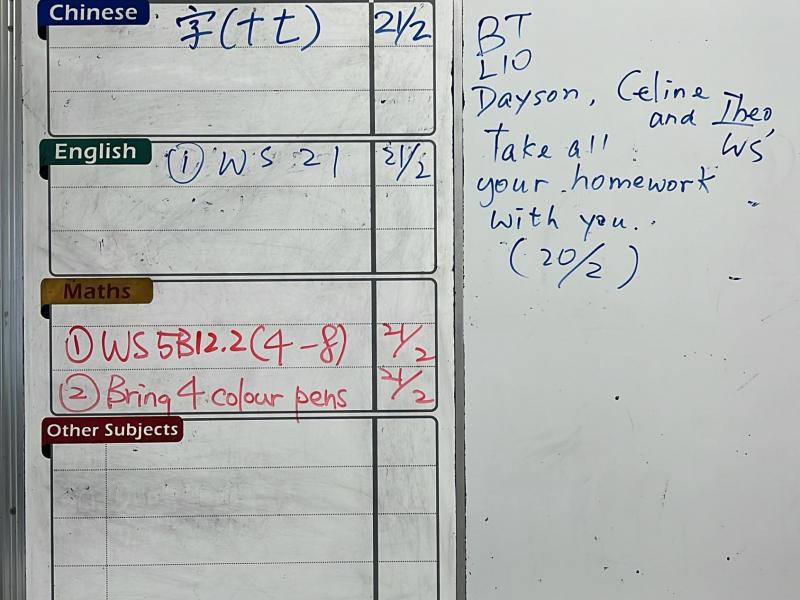 Chinese
字(十七) 21/2
English
① WS 21 21/2
Maths
① WS 5B12.2(4-8) 21/2
② Bring 4 colour pens 21/2
Other Subjects
BT
L10
Dayson, Celine
and Theo,
Take all WS
your homework
with you.
(20/2)